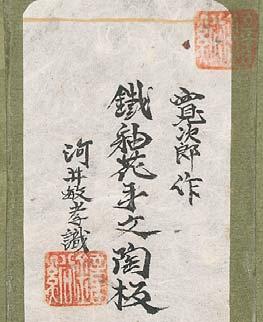 寛次郎作
鐵釉花手文陶板
河井敏孝識